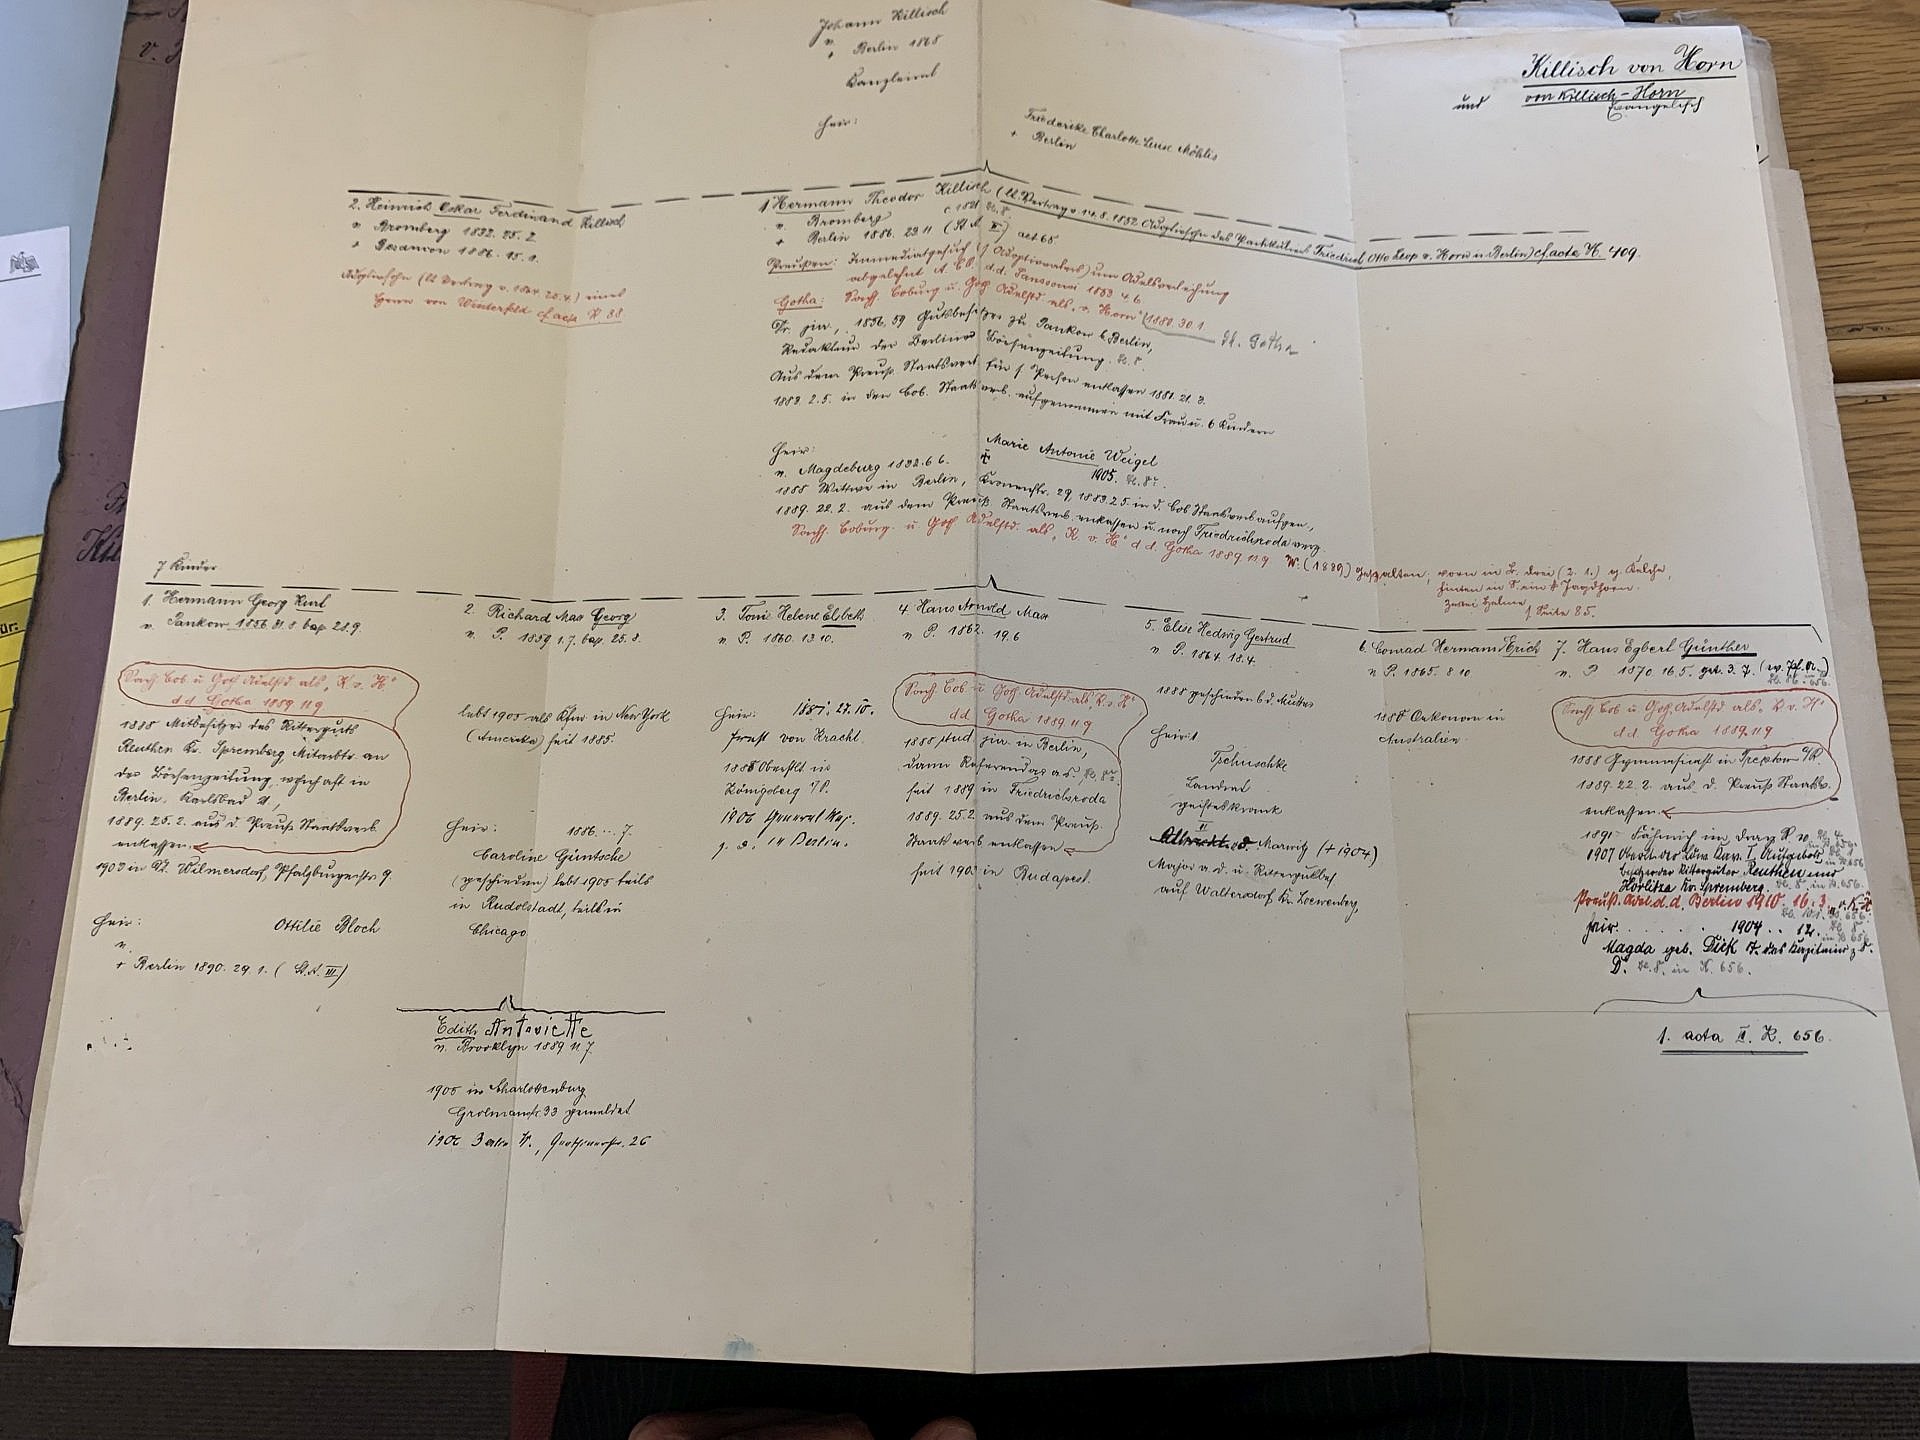 Johann Killisch
n.
+ Berlin 1865
Kanzleirat
heir:
Friederike Charlotte Luise Möhlis
+ Berlin
Killisch von Horn
und von Killisch-Horn
Evangelisch
2. Heinrich Oskar Ferdinand Killisch
n. Bromberg 1832. 25. 2.
+ Besancon 1886. 15. 1.
Adoptivsohn (lt Vertrag v. 1864. 28. 4.) eines
Herrn von Winterfeld cf. acta
1 Hermann Theodor Killisch (lt. Vertrag v. 14. 8. 1852 Adoptivsohn des Friedrich Otto Leop v. Horn in Berlin) cf. acta H. 409.
n. Bromberg c. 1821
+ Berlin 1886. 23 11 (St. A. III) aet 65
Preußen: Immediatgesuch (s Adoptivvaters) um Adelsverleihung
abgelehnt A. Cb. d. d. Sanssouci 1853 4. 6.
Gotha: Sachs. Coburg u. Goth Adelstd. als "v. Horn" 1880. 30. 1.
Bl. Gotha
Dr. jur., 1856, 59 Gutsbesitzer zu Pankow b. Berlin,
Redakteur der Berliner Börsenzeitung.
Aus dem Preuß. Staatsverb. für s Person entlassen 1881. 21. 3.
1883. 2. 5. in den Cob. Staatsverb. aufgenommen mit Frau u. 6 Kindern
heir:
Marie Antonie Weigel
n. Magdeburg 1832. 6 6.
+ 1905.
1888 Wittwe in Berlin, Kronenstr. 29, 1883 2 5. in d. Cob Staatsverb aufgen.,
1889. 22. 2. aus dem Preuß. Staatsverb. entlassen u. nach Friedrichroda verz.
Sachs. Coburg. u Goth Adelstd. als "K. v. H." d d. Gotha 1889 11 9 W. (1889) gespalten; vorn in drei (2. 1.) g. Kelche,
hinten in Jagdhorn.
zwei Helme s. Seite 85.
7 Kinder
1. Hermann Georg Kurt
n. Pankow 1856. 31. 8 bap 28. 9.
Sachs Cob. u Goth Adelstd als "K. v. H."
d d Gotha 1889 11 9
1888 Mitbesitzer des Ritterguts
Reuthen Kr. Spremberg, Mitarbtr. an
der Börsenzeitung, wohnhaft in
Berlin, Karlsbad
1889. 25. 2. aus d. Preuß Staatsverb.
entlassen.
1903 in Dt. Wilmersdorf, Pfalzburgerstr 9.
heir:
Ottilie Bloch
n.
+ Berlin 1890. 29. 1. (St. A. III)
2. Richard Max Georg
n. P. 1859 1. 7. bap. 25. 8.
lebt 1905 als Kfm in New York
(Amerika) seit 1885.
heir: 1886. .. 7.
Caroline Güntsche
(geschieden) lebt 1905 teils
in Rudolstadt, teils in
Chicago
Edith Antoniette
n. Brooklyn 1889 11. 7
1905 in Charlottenburg
Grolmanstr. 33 gemeldet
26
3. Toni Helene Elsbeth
n P. 1860. 13 10.
heir: 1881. 27. 10.
Ernst von Kracht.
1888 Oberstlt in
Königsberg
1906 General Maj.
z. D. in Berlin.
4 Hans Arnold Max
n P. 1862. 19. 6
Sachs Cob. u Goth. Adelstd. als "K. v. H."
d d. Gotha 1889 11 9
1888 stud. jur. in Berlin,
dann Referendar a. D.
seit 1889 in Friedrichroda
1889. 25. 2. aus dem Preuß.
Staatsverb entlassen
seit 190 in Budapest.
5. Elise Hedwig Gertrud
n P. 1864. 18. 4.
1888 geschieden b d. Mutter
heir: I
Tzschuschke
Landrat
geisteskrank
II
v. d. Marwitz (+ 1904)
Major a. d. u. Rittergutsbes
auf Waltersdorf Kr. Loewenberg,
6. Conrad Hermann Erich
n P. 1865. 8 10
1888 Oekonom in
Australien.
7. Hans Egbert Günther
n. P 1870. 16. 5. get. 3. 7.
Sachs Cob u Goth. Adelstd als "K v. H."
d d. Gotha 1889. 11 9
1888 Gymnasiast in Treptow a/R
1889. 22. 2. aus d. Preuß Staatsv.
entlassen
1891 Fähnrich im Drag R
1907 Oberlt der Ldw. Kav. I. Aufgebots
Besitzer der Rittergüter Reuthen und
Horlitza Kr. Spremberg.
Preuß. Adel d. d. Berlin 1910. 16. 3. "v. K.-H."
heir. . . . . . 1904 . . 12.
Magda geb. Dick T. des Kapitain z. S.
D. Bl. 8. in K. 656.
1. acta II. K. 656.